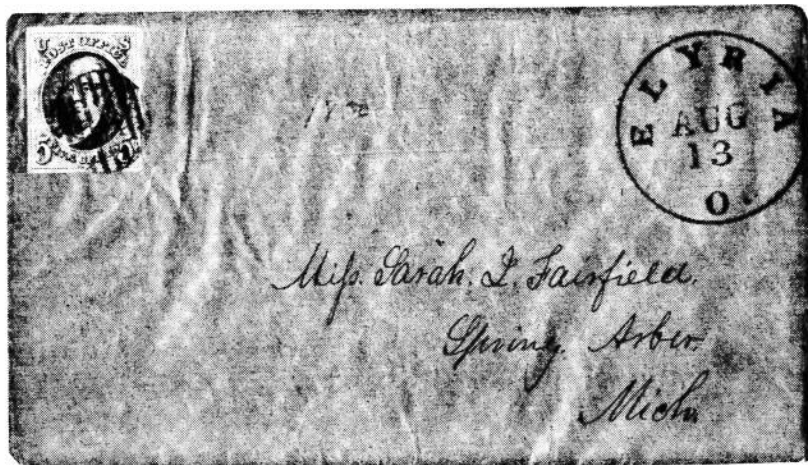 POST OFFICE
5 5
ELYRIA
AUG
13
O.
Miss. Sarah. I. Fairfield.
Spring. Arbor.
Mich.